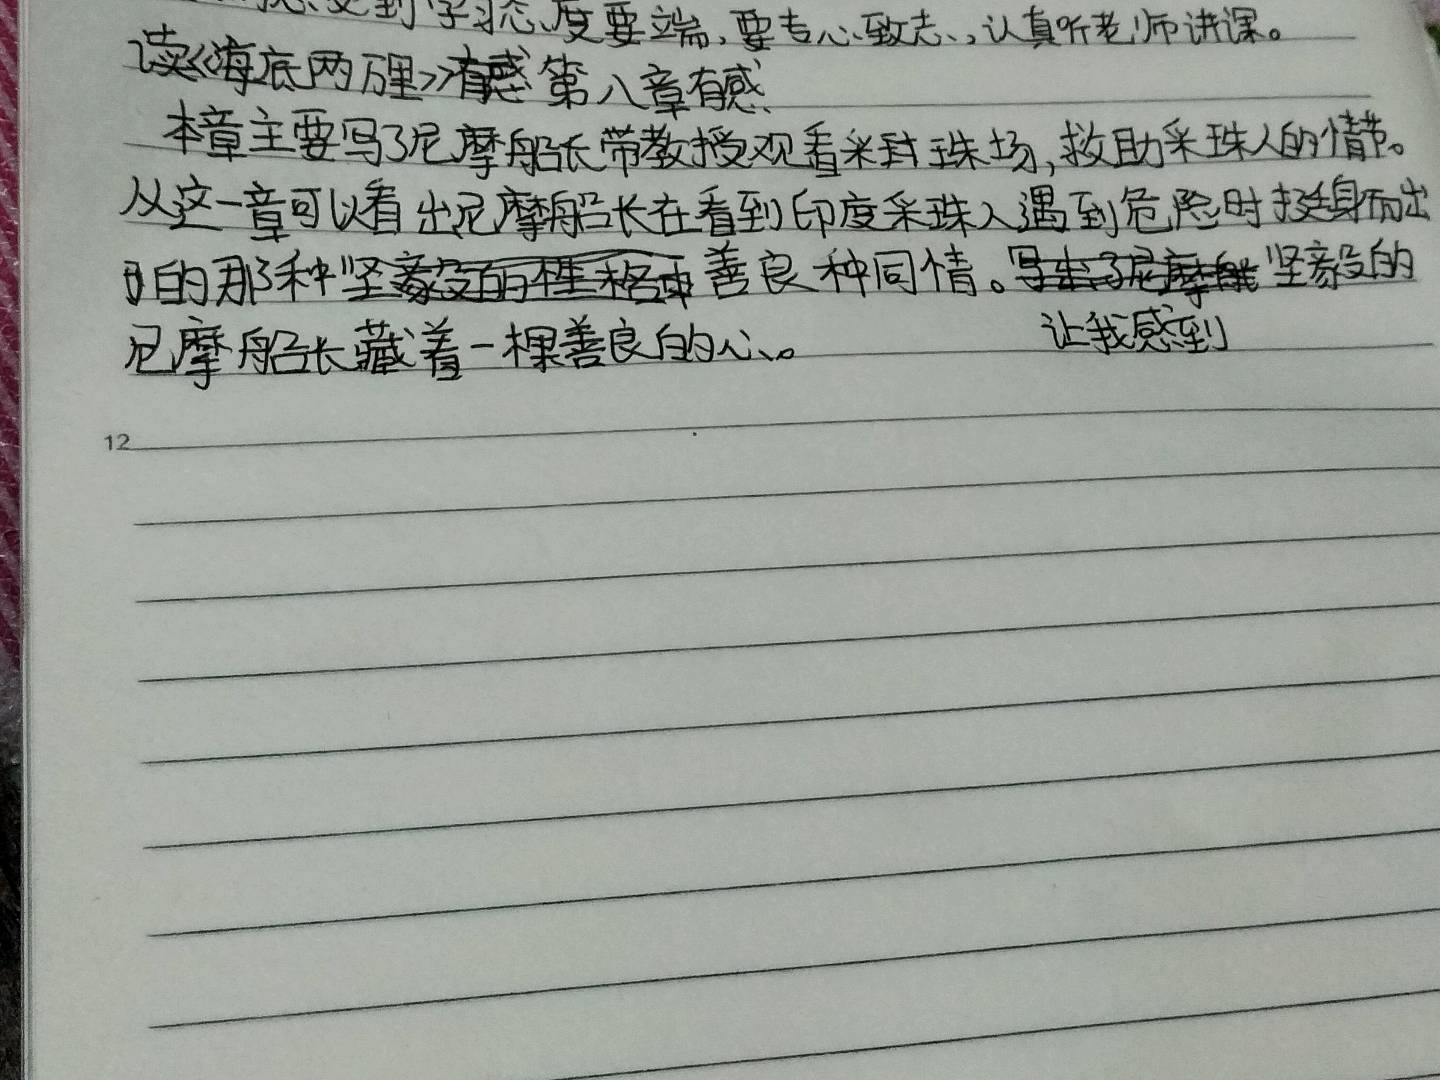 学习态度要端,要专心致志,认真听老师讲课。
读《海底两万里》第八章有感
本章主要写了尼摩船长带教授观看采珠场,救助采珠人的情节。
从这一章可以看出尼摩船长在看到印度采珠人遇到危险时挺身而出
的那种善良种同情。让我感到坚毅的
尼摩船长藏着一棵善良的心。
12